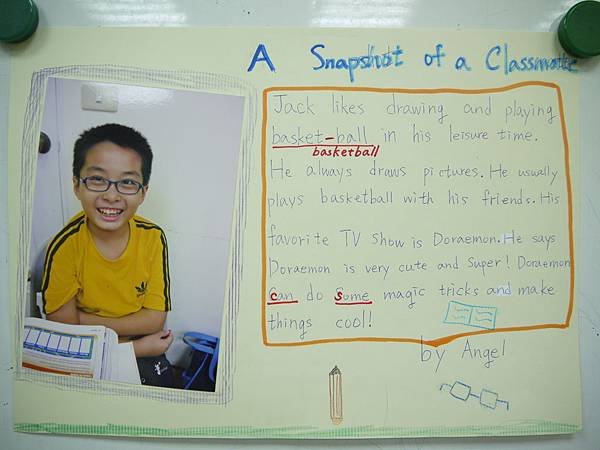 A Snapshot of a Classmate
Jack likes drawing and playing
basket-ball in his leisure time.
basketball
He always draws pictures. He usually
plays basketball with his friends. His
favorite TV Show is Doraemon. He says
Doraemon is very cute and Super! Doraemon
can do some magic tricks and make
things cool!
by Angel